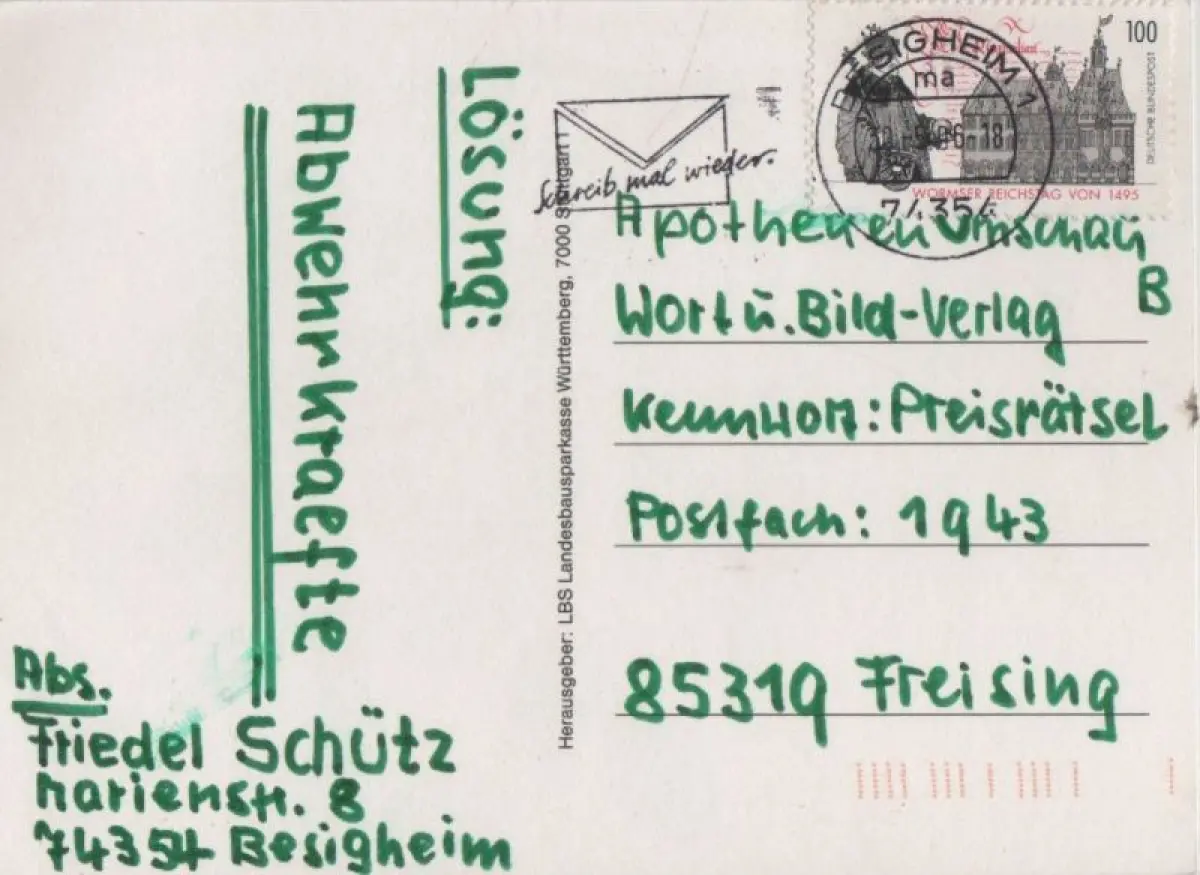 Lösung:
Abwehrkraefte
Abs.
Friedel Schütz
Marienstr. 8
74354 Besigheim
Herausgeber: LBS Landesbausparkasse Württemberg, 7000 Stuttgart 1
Schreib mal wieder.
BESIGHEIM 1
ma
-18
74354
100
DEUTSCHE BUNDESPOST
WORMSER REICHSTAG VON 1495
Apotheken Umschau
B
Wort u. Bild-Verlag
Kennwort: Preisrätsel
Postfach: 1943
85319 Freising